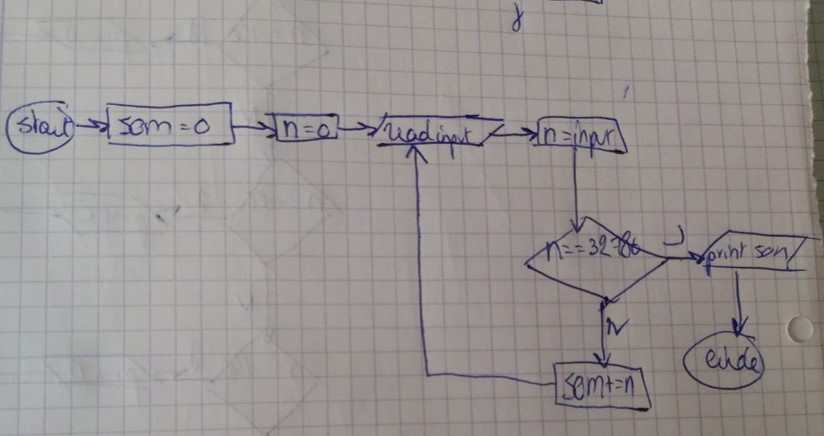 start
som = 0
n = 0
read input
n = input
n == 32786
J
print som
N
som += n
einde